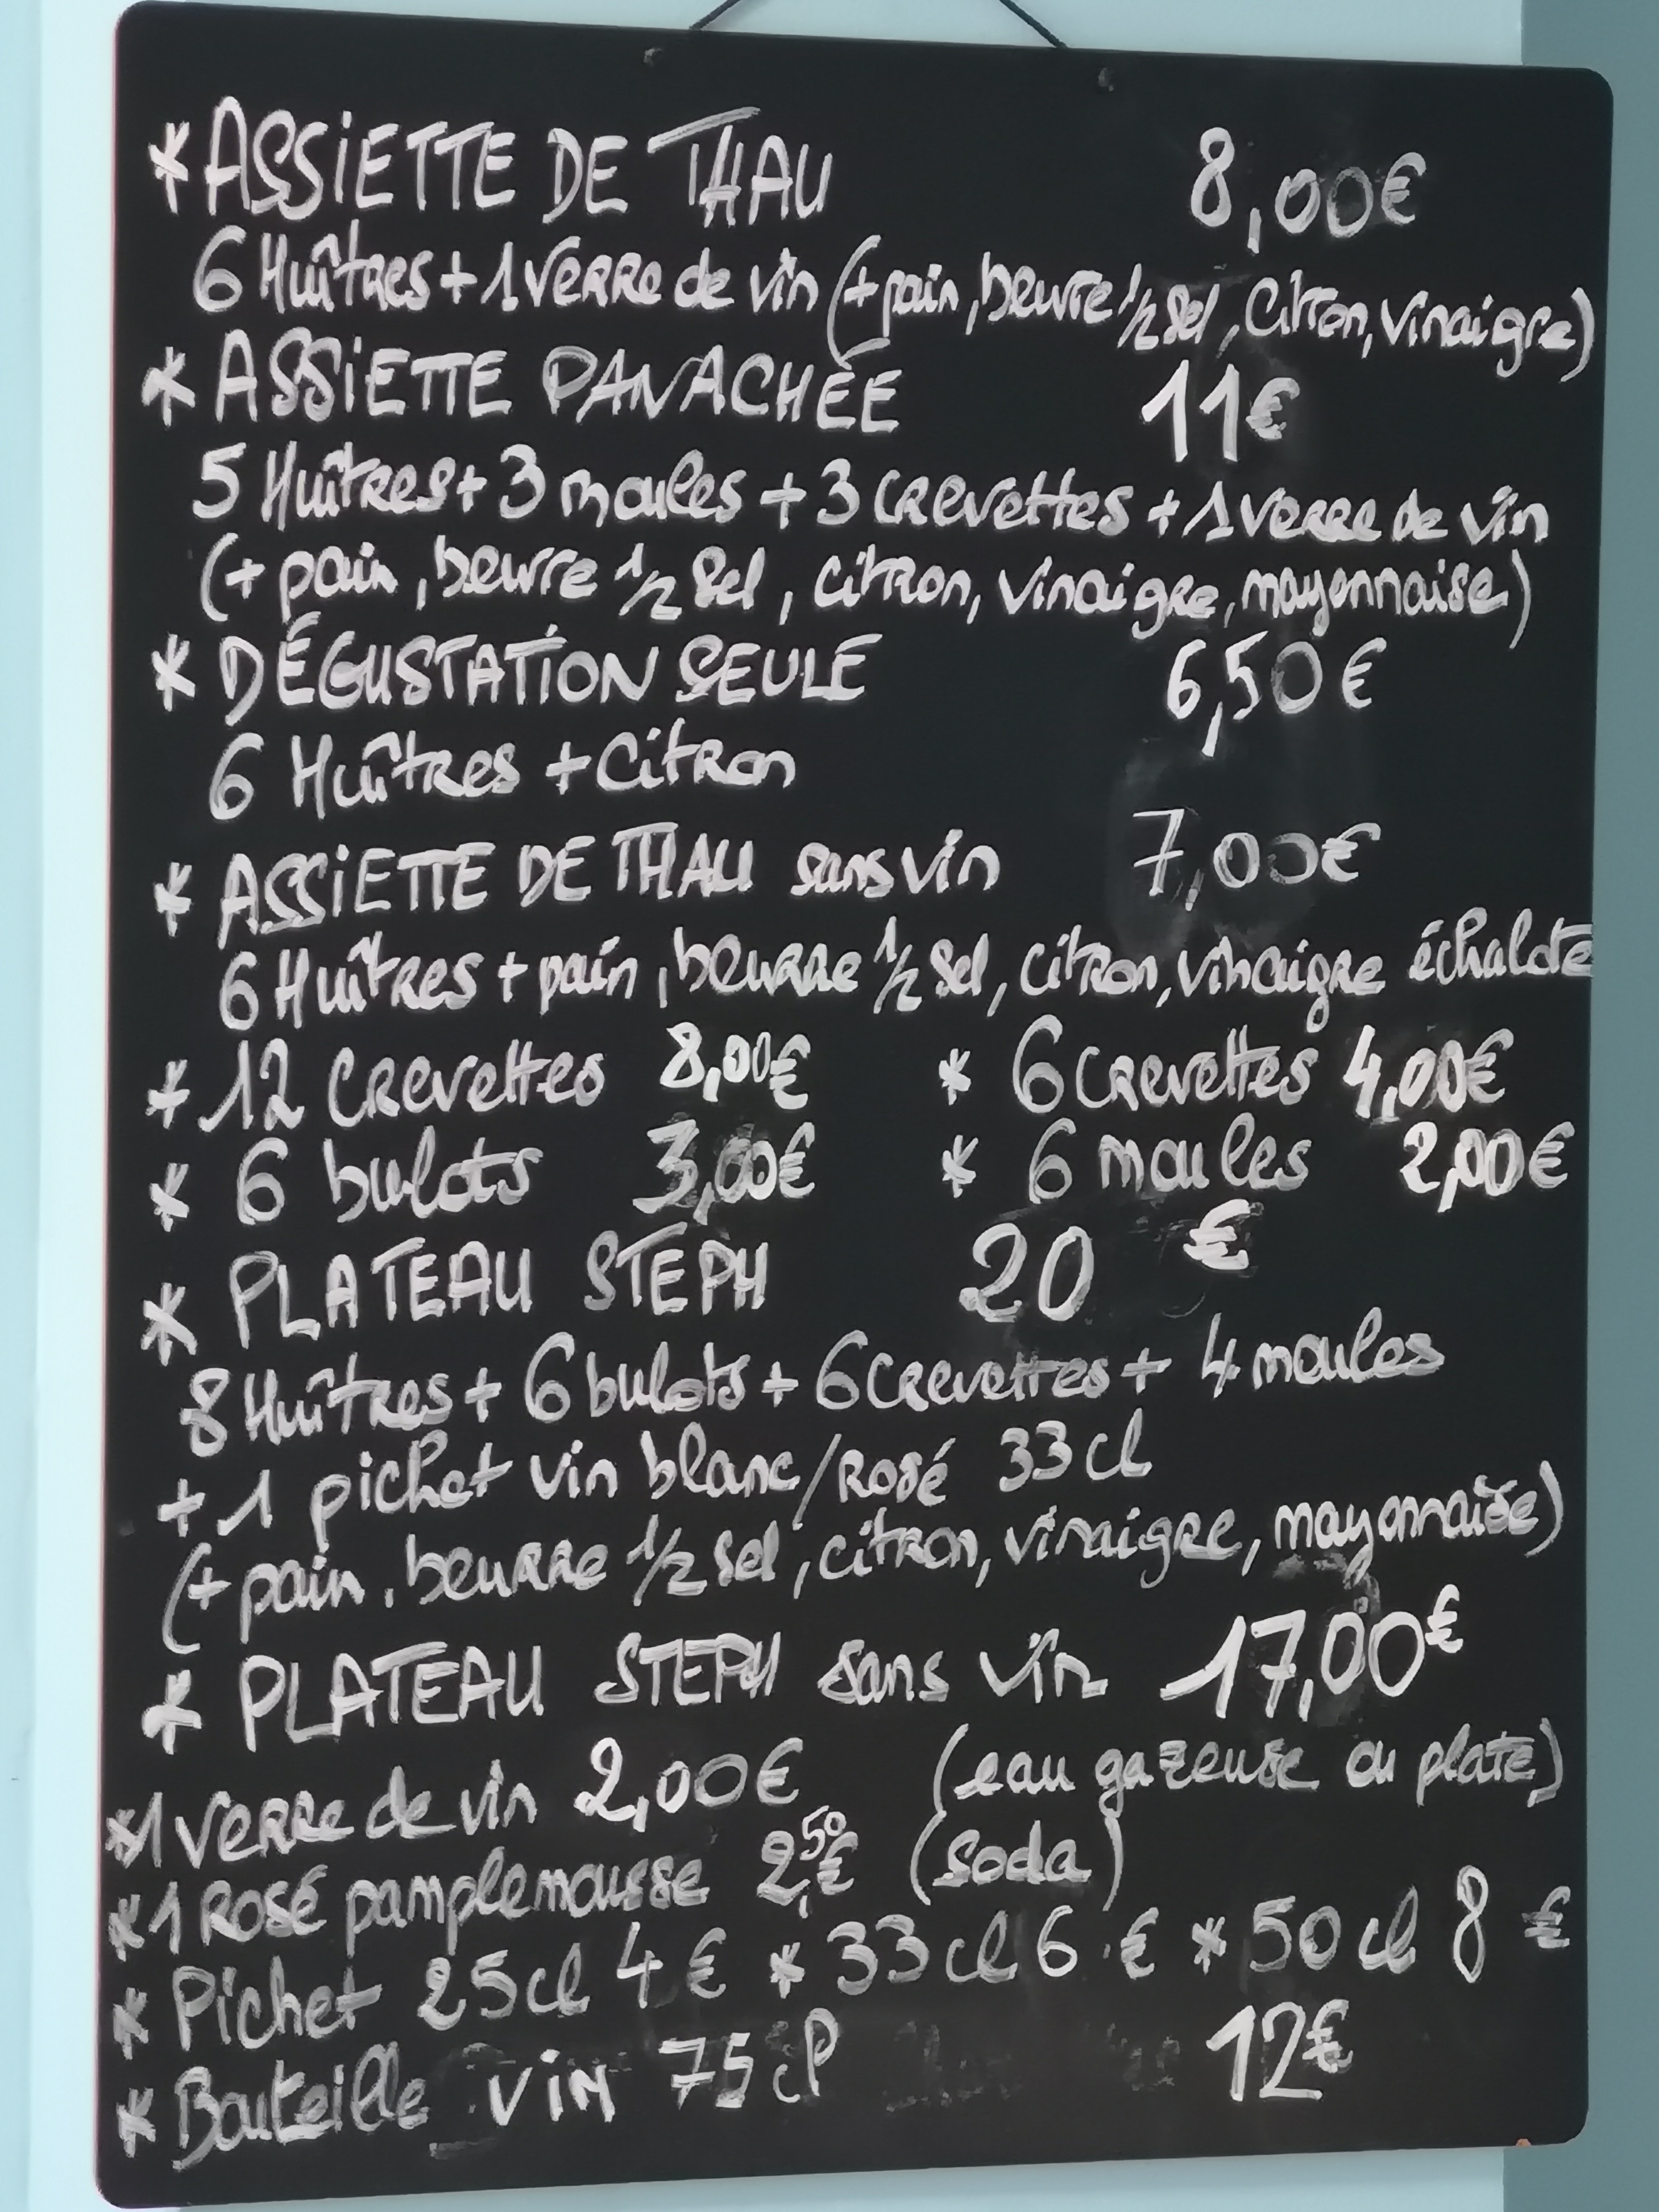 * ASSIETTE DE THAU 8,00€
6 Huîtres + 1 verre de vin (+ pain, beurre 1/2 sel, citron, vinaigre)
* ASSIETTE PANACHÉE 11€
5 Huîtres + 3 moules + 3 crevettes + 1 verre de vin
(+ pain, beurre 1/2 sel, citron, vinaigre, mayonnaise)
* DÉGUSTATION SEULE 6,50€
6 Huîtres + citron
* ASSIETTE DE THAU sans vin 7,00€
6 Huîtres + pain, beurre 1/2 sel, citron, vinaigre échalote
* 12 crevettes 8,00€ * 6 crevettes 4,00€
* 6 bulots 3,00€ * 6 moules 2,00€
* PLATEAU STEPH 20 €
8 Huîtres + 6 bulots + 6 crevettes + 4 moules
+ 1 pichet vin blanc/Rosé 33cl
(+ pain, beurre 1/2 sel, citron, vinaigre, mayonnaise)
* PLATEAU STEPH sans vin 17,00€
*1 verre de vin 2,00€ (eau gazeuse ou plate)
*1 Rosé pamplemousse 2,50€ (soda)
* Pichet 25cl 4€ * 33cl 6€ * 50cl 8€
* Bouteille vin 75cl 12€